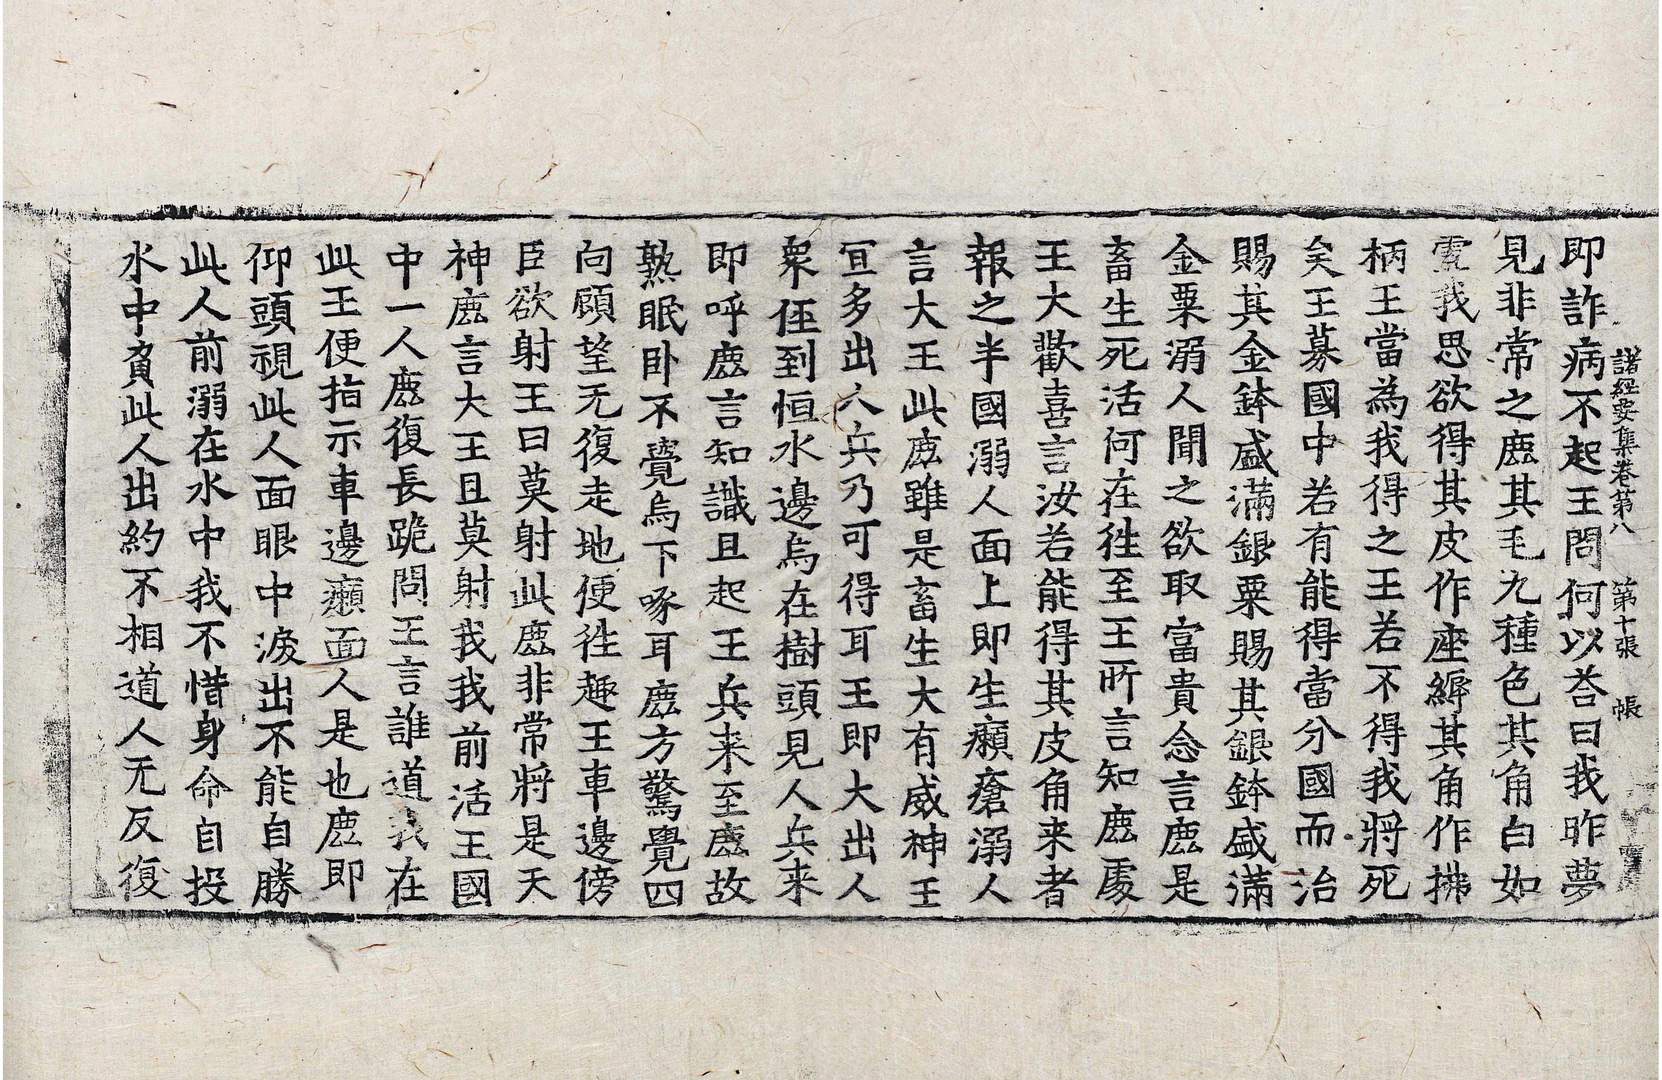 諸經要集卷第八 第十張 帳
即詐病不起王問何以荅曰我昨夢
見非常之鹿其毛九種色其角白如
雪我思欲得其皮作座褥其角作拂
柄王當為我得之王若不得我將死
矣王募國中若有能得當分國而治
賜其金鉢盛滿銀粟賜其銀鉢盛滿
金粟溺人聞之欲取富貴念言鹿是
畜生死活何在徃至王所言知鹿處
王大歡喜言汝若能得其皮角来者
報之半國溺人面上即生癩瘡溺人
言大王此鹿雖是畜生大有威神王
宜多出人兵乃可得耳王即大出人
衆徑到恒水邊烏在樹頭見人兵来
即呼鹿言知識且起王兵来至鹿故
熟眠卧不覺烏下啄耳鹿方驚覺四
向顧望无復走地便徃趣王車邊傍
臣欲射王曰莫射此鹿非常將是天
神鹿言大王且莫射我我前活王國
中一人鹿復長跪問王言誰道我在
此王便指示車邊癩面人是也鹿即
仰頭視此人面眼中淚出不能自勝
此人前溺在水中我不惜身命自投
水中負此人出約不相道人无反復